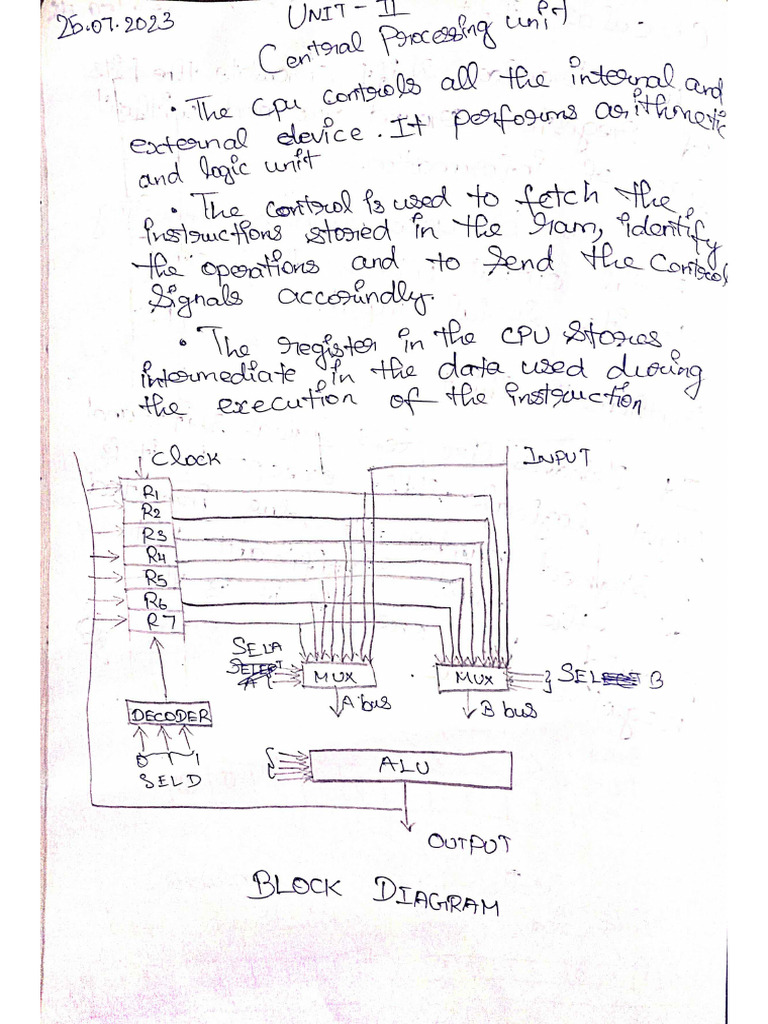 25.07.2023
UNIT - II
Central Processing unit
• The Cpu controls all the internal and
external device. It performs arithmetic
and logic unit
• The control is used to fetch the
instructions stored in the ram, identify
the operations and to send the control
signals accorindly.
• The register in the CPU stores
intermediate in the data used during
the execution of the instruction
Clock
INPUT
R1
R2
R3
R4
R5
R6
R7
SELA
MUX
MUX
SEL B
A bus
B bus
DECODER
0 1 1
SELD
ALU
OUTPUT
BLOCK DIAGRAM